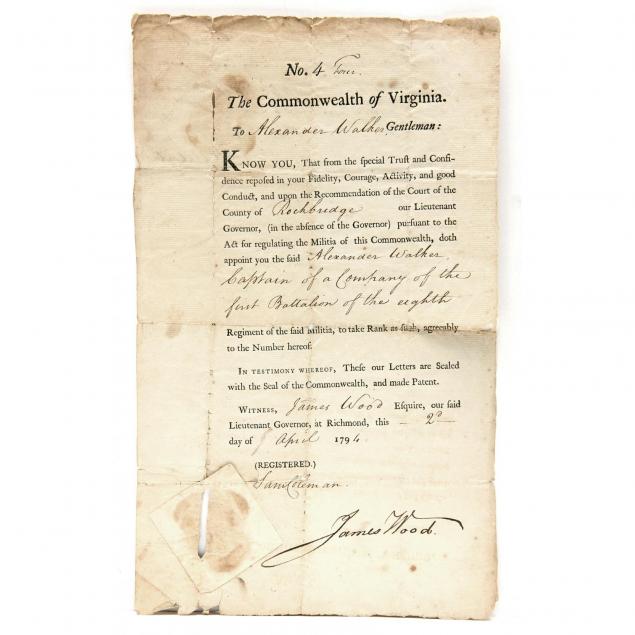 No. 4 Four.
The Commonwealth of Virginia.
To Alexander Walker Gentleman:
KNOW YOU, That from the special Trust and Confi-
dence reposed in your Fidelity, Courage, Activity, and good
Conduct, and upon the Recommendation of the Court of the
County of Rockbridge our Lieutenant
Governor, (in the absence of the Governor) pursuant to the
Act for regulating the Militia of this Commonwealth, doth
appoint you the said Alexander Walker
Captain of a Company of the
first Battalion of the eighth
Regiment of the said Militia, to take Rank as such, agreeably
to the Number hereof.
IN TESTIMONY WHEREOF, These our Letters are Sealed
with the Seal of the Commonwealth, and made Patent.
WITNESS, James Wood Esquire, our said
Lieutenant Governor, at Richmond, this 2d
day of April 1794
(REGISTERED.)
Sam Coleman.
James Wood.